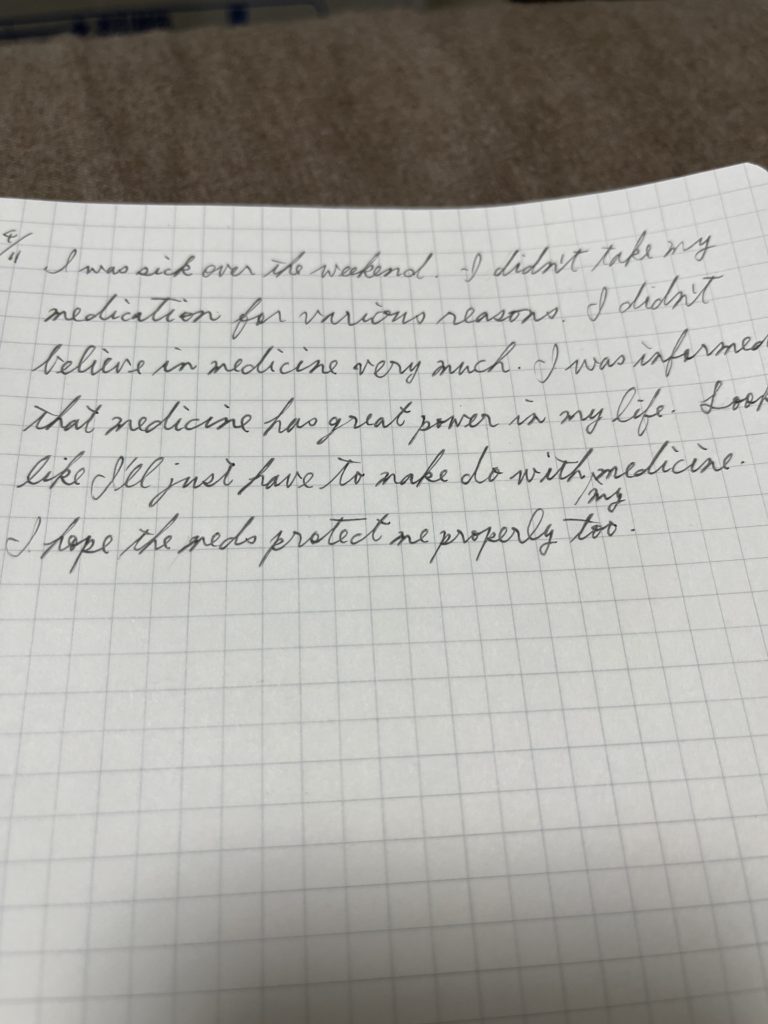 4/11 I was sick over the weekend. I didn't take my
medication for various reasons. I didn't
believe in medicine very much. I was informed
that medicine has great power in my life. Look
like I'll just have to make do with medicine.
my
I hope the meds protect me properly too.